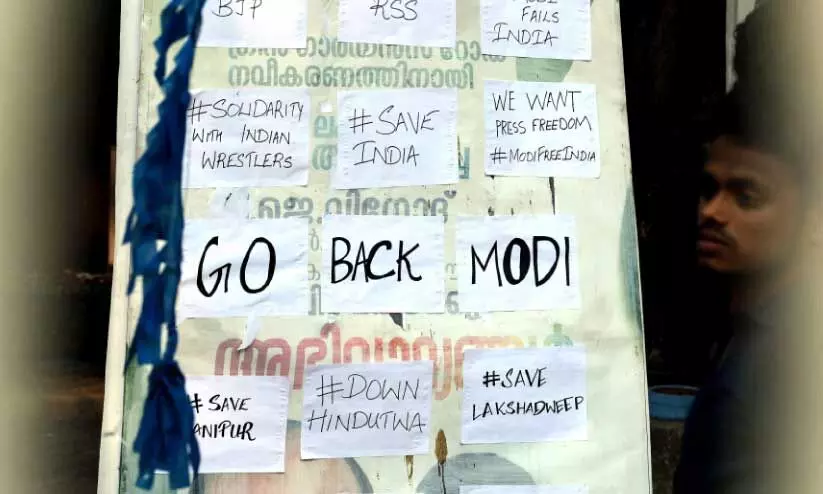 BJP
RSS
FAILS
INDIA
നവീകരണത്തിനായി
#SOLIDARITY
WITH INDIAN
WRESTLERS
#SAVE
INDIA
WE WANT
PRESS FREEDOM
#MODIFREEINDIA
ജെ.വിനോദ്
GO
BACK
MODI
അഭിവാദ്യങ്ങൾ
#SAVE
ANIPUR
#DOWN
HINDUTWA
#SAVE
LAKSHADWEEP